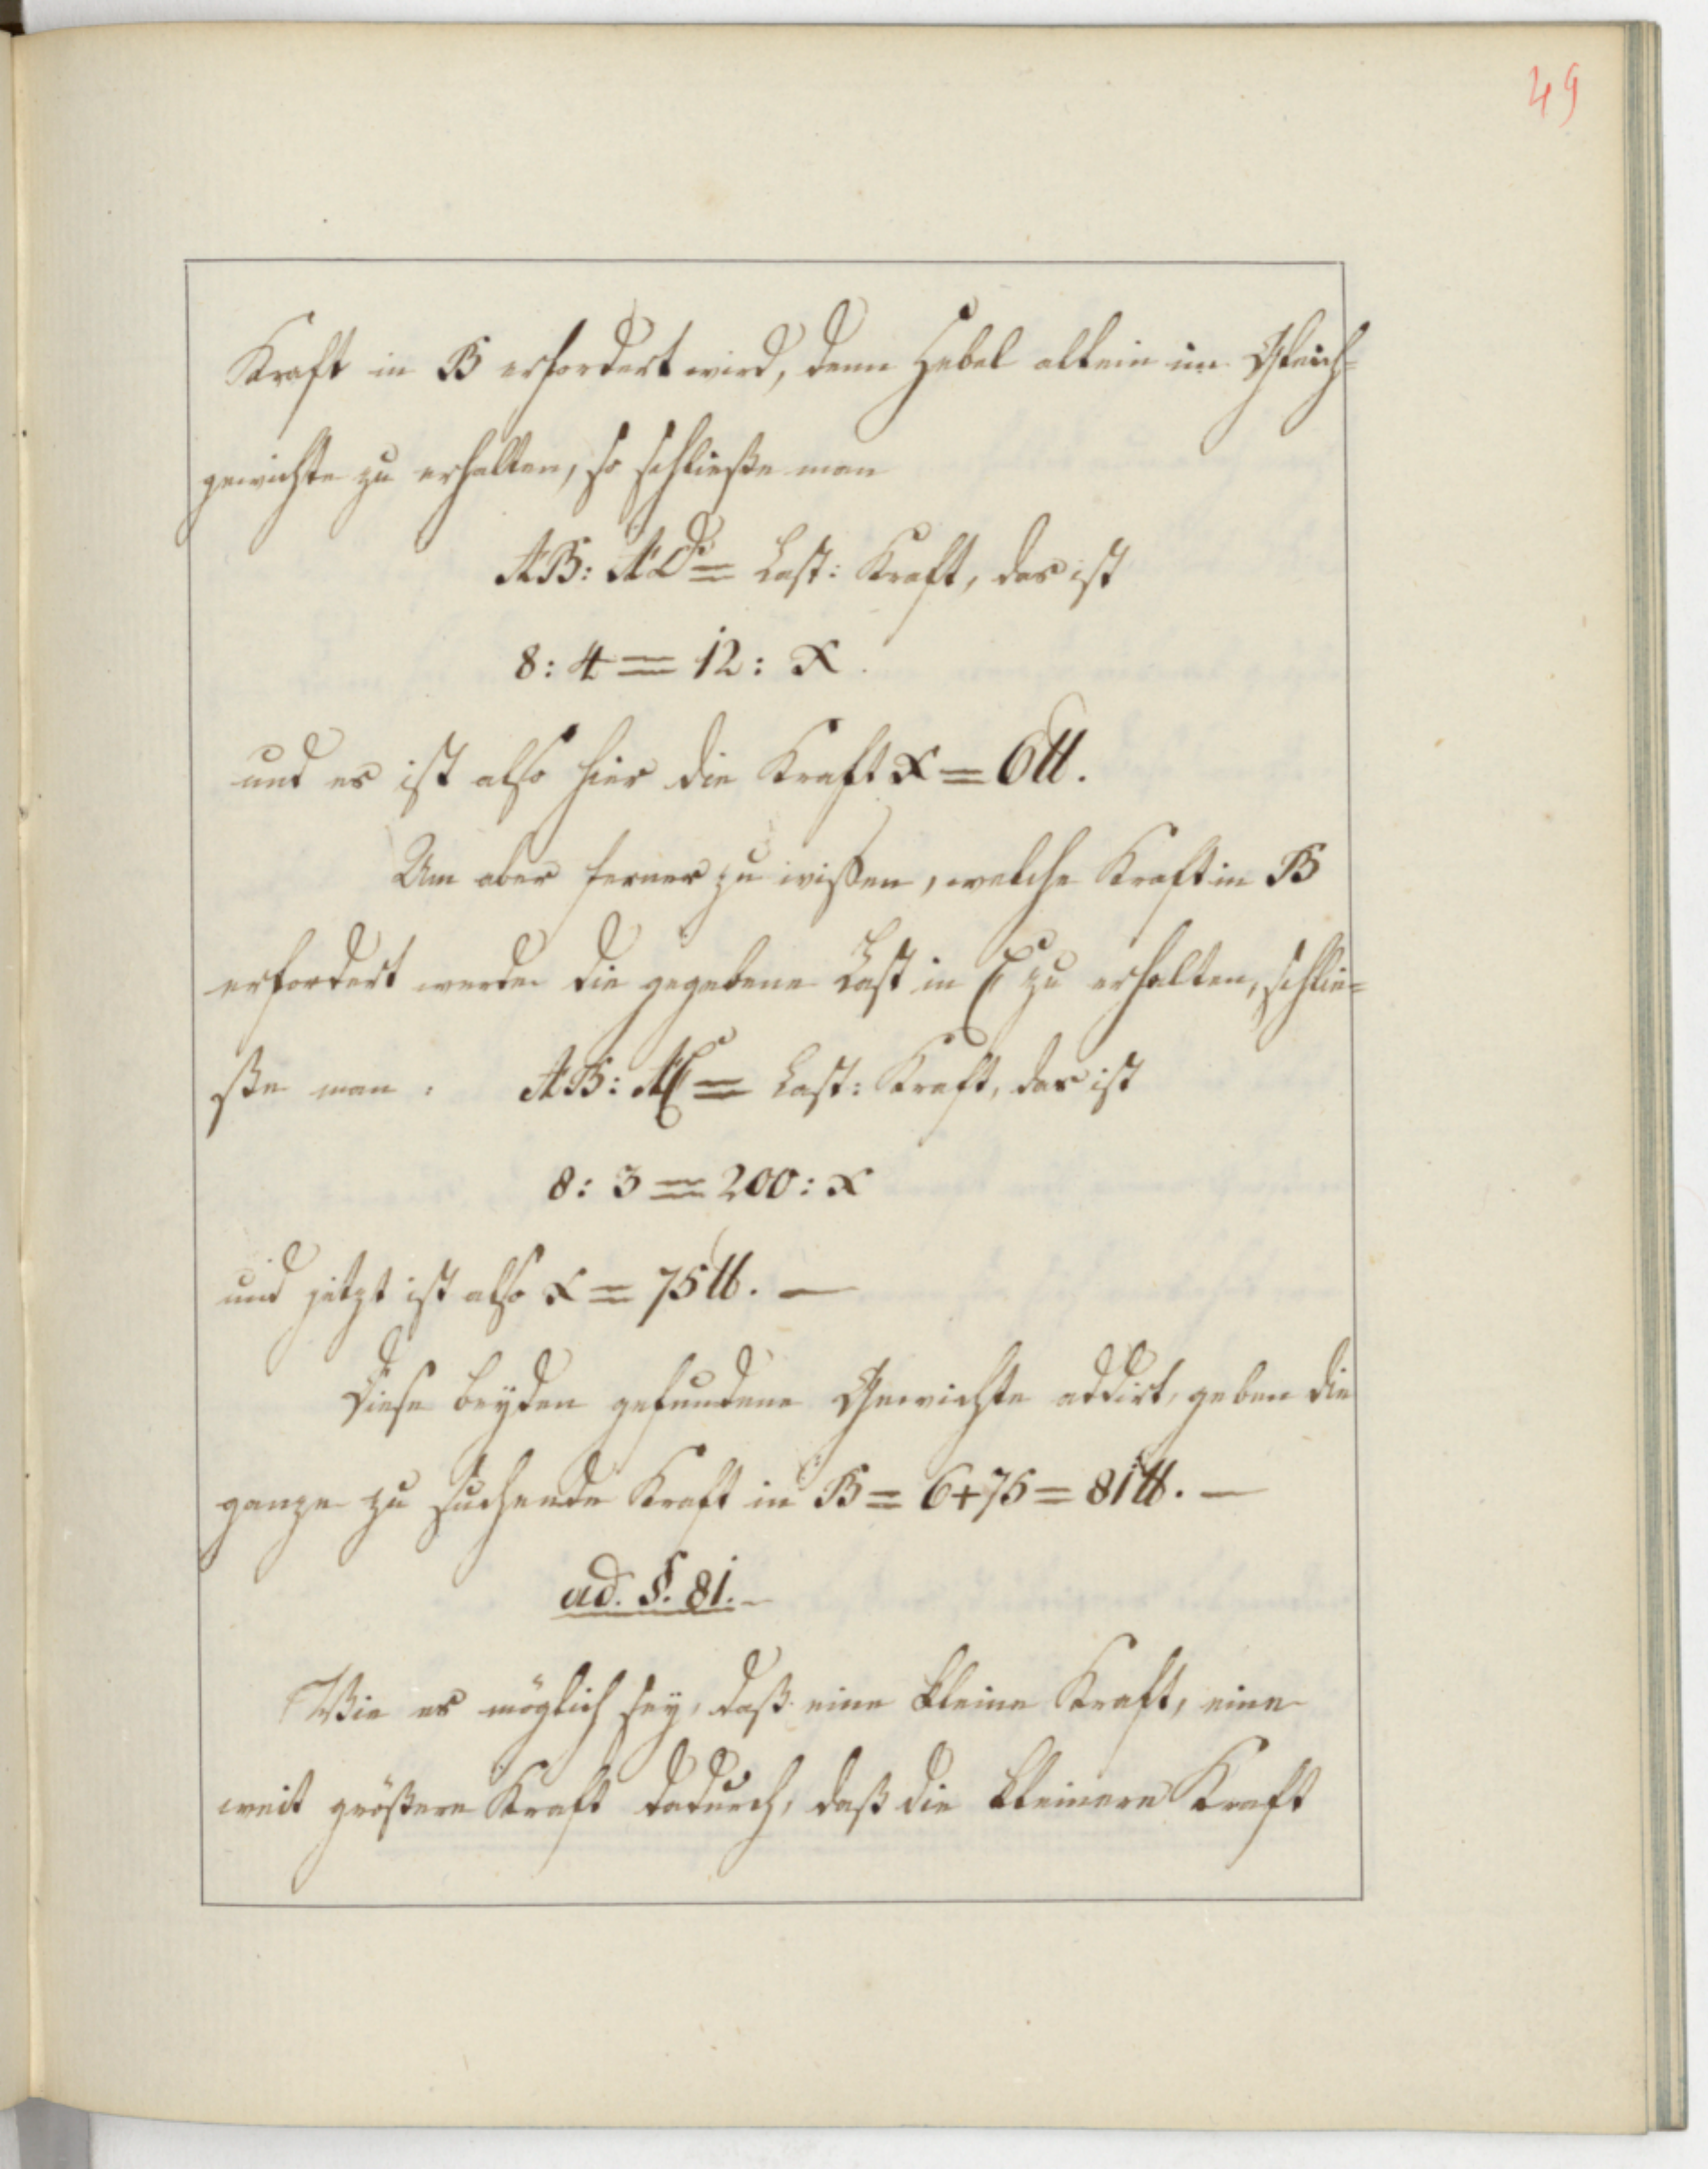 49
Kraft in B erfordert wird, denn Hebel allein im Gleich=
gewichte zu erhalten, so schließe man
AB: AD = Last: Kraft, das ist
8: 4 = 12: x.
und es ist also hier die Kraft x = 6 ℔.
Um aber ferner zu wißen, welche Kraft in B
erfordert werde die gegebene Last in E zu erhalten, schlie=
ße man: AB: AE = Last: Kraft, das ist
8: 3 = 200: x
und jetzt ist also x = 75 ℔. —
Diese beyden gefundene Gewichte addirt, geben die
ganze zu suchende Kraft in B = 6+75 = 81 ℔. —
ad. §. 81. —
Wie es möglich sey, daß eine kleine Kraft, eine
weit größere Kraft dadurch, daß die kleinere Kraft